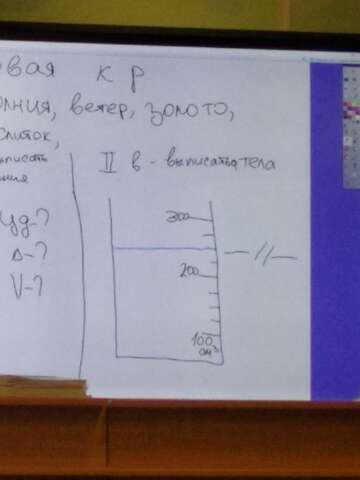 овая к р
олния, ветер, золото,
слиток,
выписать
ния
II в - выписать тела
Цд-?
Δ-?
V-?
300
200
100
см³
— // —